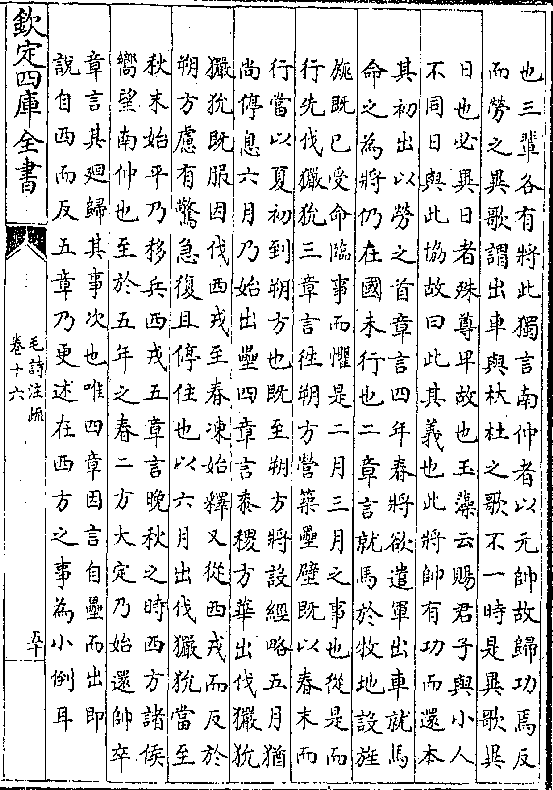 也三輩各有將此獨言南仲者以元帥故歸功焉反
而勞之異歌謂出車與杕杜之歌不一時是異歌異
日也必異日者殊尊卑故也玉藻云賜君子與小人
不同日與此協故曰此其義也此將帥有功而還本
其初出以勞之首章言四年春將欲遣軍出車就馬
命之為將仍在國未行也二章言就馬於牧地設旌
旐既已受命臨事而懼是二月三月之事也從是而
行先伐玁狁三章言往朔方營築壘壁既以春末而
行當以夏初到朔方也既至朔方將設經略五月猶
尚停息六月乃始出壘四章言黍稷方華出伐玁狁
玁狁既服因伐西戎至春凍始釋又從西戎而反於
朔方慮有驚急復且停住也以六月出伐玁狁當至
秋末始平乃移兵西戎五章言晚秋之時西方諸侯
嚮望南仲也至於五年之春二方大定乃始還帥卒
章言其廻歸其事次也唯四章因言自壘而出即
說自西而反五章乃更述在西方之事為小倒耳
欽定四庫全書
毛詩注疏
卷十六
五十